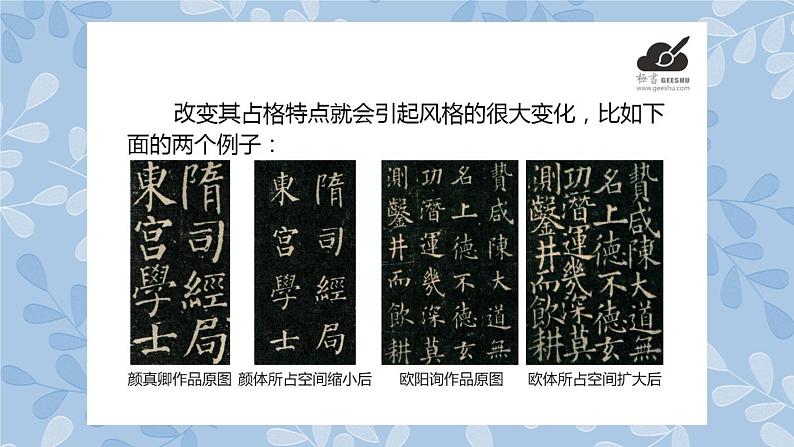 極書 GEESHU
www.geeshu.com
改变其占格特点就会引起风格的很大变化，比如下
面的两个例子：
隋司經局
東宮學士
隋司經局
東宮學士
贊咸陳大道無
名上德不德玄
功潛運幾深莫
測鑿井而飲耕
贊咸陳大道無
名上德不德玄
功潛運幾深莫
測鑿井而飲耕
颜真卿作品原图
颜体所占空间缩小后
欧阳询作品原图
欧体所占空间扩大后